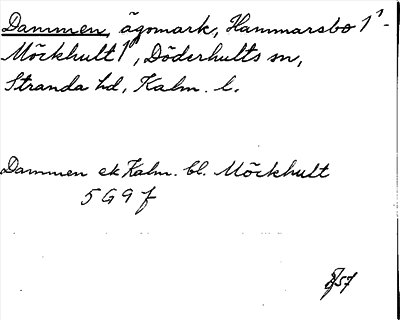 Dammen, ägomark, Hammarsbo 1¹-
Möckhult 1⁰, Döderhults sn,
Stranda hd, Kalm. l.
Dammen ek Kalm. bl. Möckhult
5G9f